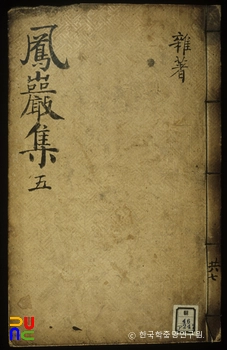 鳳巖集 五
雜著
共七
© 한국학중앙연구원